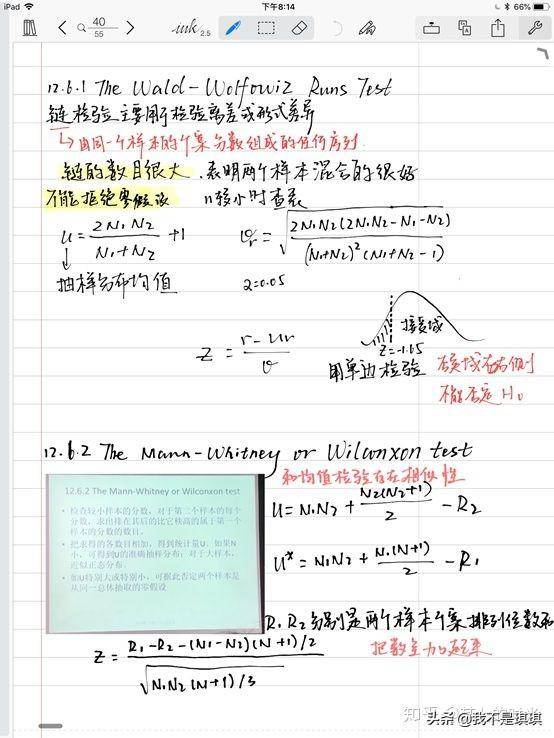 iPad
下午8:14
66%
40
55
ink 2.5
12.6.1 The Wald-Wolfowiz Runs Test
链检验主要用于检验离差或形式差异
↳由同一个样本的个案分数组成的任何序列
链的数目很大,表明两个样本混合的很好
不能拒绝零假设 n较小时查表
u = 2N₁N₂ / (N₁+N₂) + 1 σr = √(2N₁N₂(2N₁N₂-N₁-N₂) / (N₁+N₂)²(N₁+N₂-1))
抽样分布均值 2=0.05
Z = (r-ur) / σ
接受域
Z=-1.65
用单边检验
在右侧
不能否定 H₀
12.6.2 The Mann-Whitney or Wilconxon test
和均值检验存在相似性
12.6.2 The Mann-Whitney or Wilconxon test
• 检查较小样本的分数,对于第二个样本的每个
分数,求出排在其后的比它秩高的属于第一个
样本的分数的数目。
• 把求得的各数目相加,得到统计量U,如果N
小,可得到U的准确抽样分布;对于大样本,
近似正态分布。
• 如U特别大或特别小,可据此否定两个样本是
从同一总体抽取的零假设
U = N₁N₂ + N₂(N₂+1)/2 - R₂
U* = N₁N₂ + N₁(N₁+1)/2 - R₁
R₁ R₂分别是两个样本个案排列位数和
把数全加起来
Z = (R₁-R₂-(N₁-N₂)(N+1)/2) / √(N₁N₂(N+1)/3)
知乎
头条 @我不是琪琪